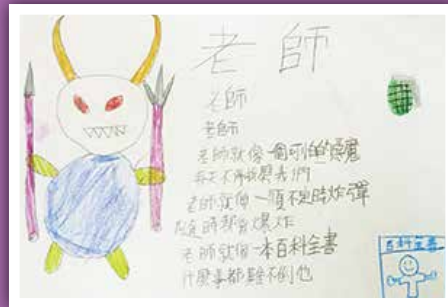 老師
老師
老師
老師就像一個可怕的惡魔
老師就像一顆不定時炸彈
隨時都會爆炸
老師就像一本百科全書
什麼事都難不倒他
百科全書